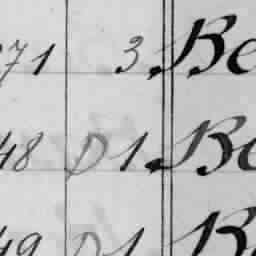 71 3 Be
48 D 1 Be
49 D 1 B